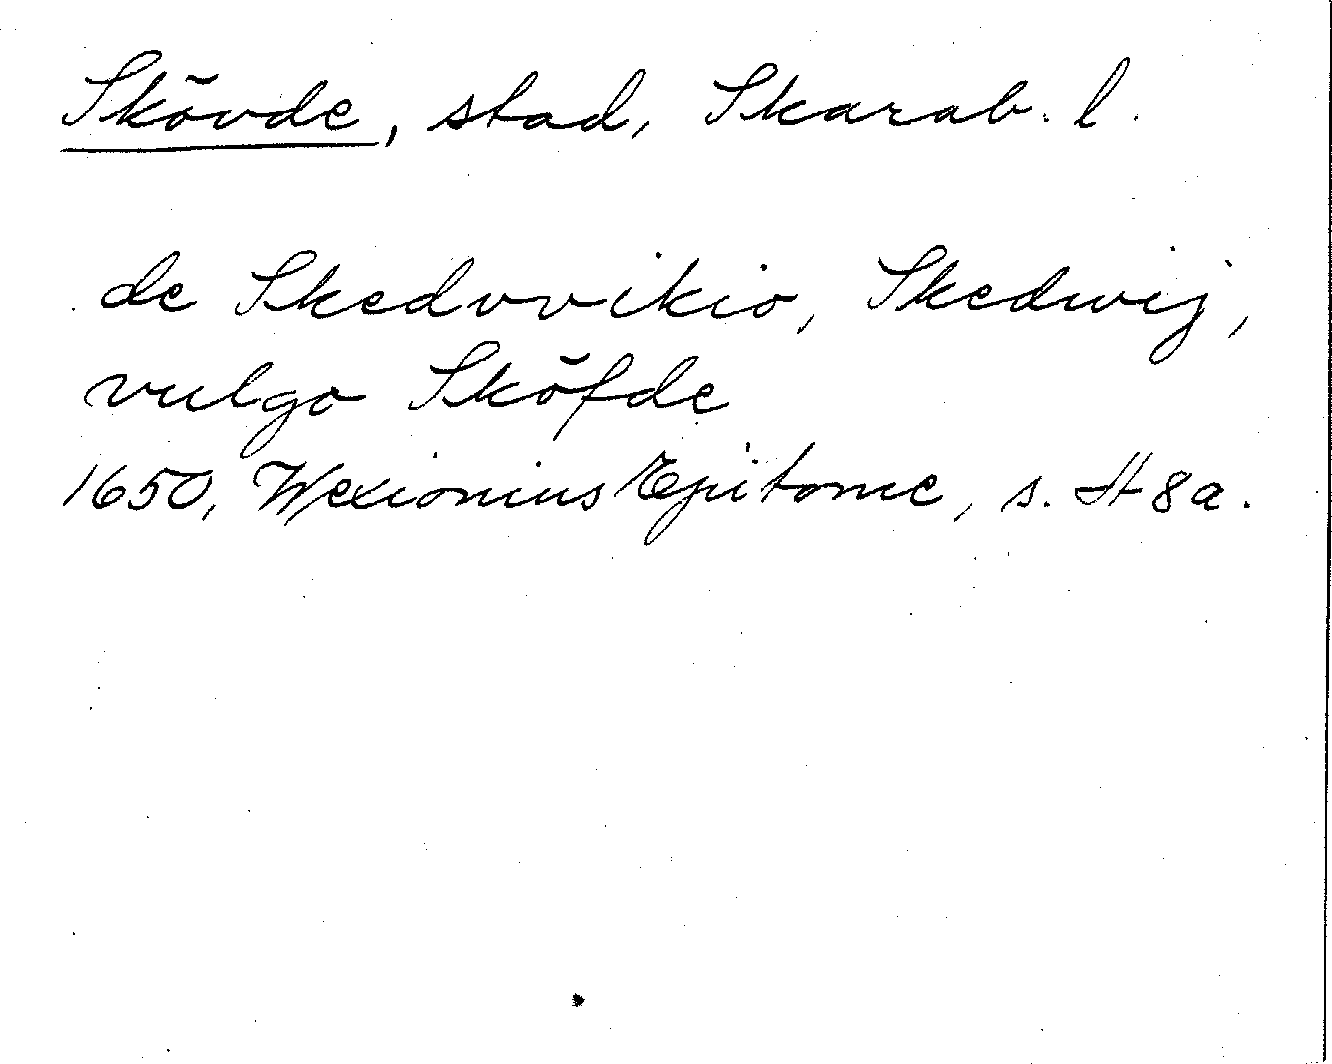 Skövde, stad, Skarab. l.
de Skedvvikio, Skedwij,
vulgo Sköfde
1650, Wexionius Epitome, s. H8a.